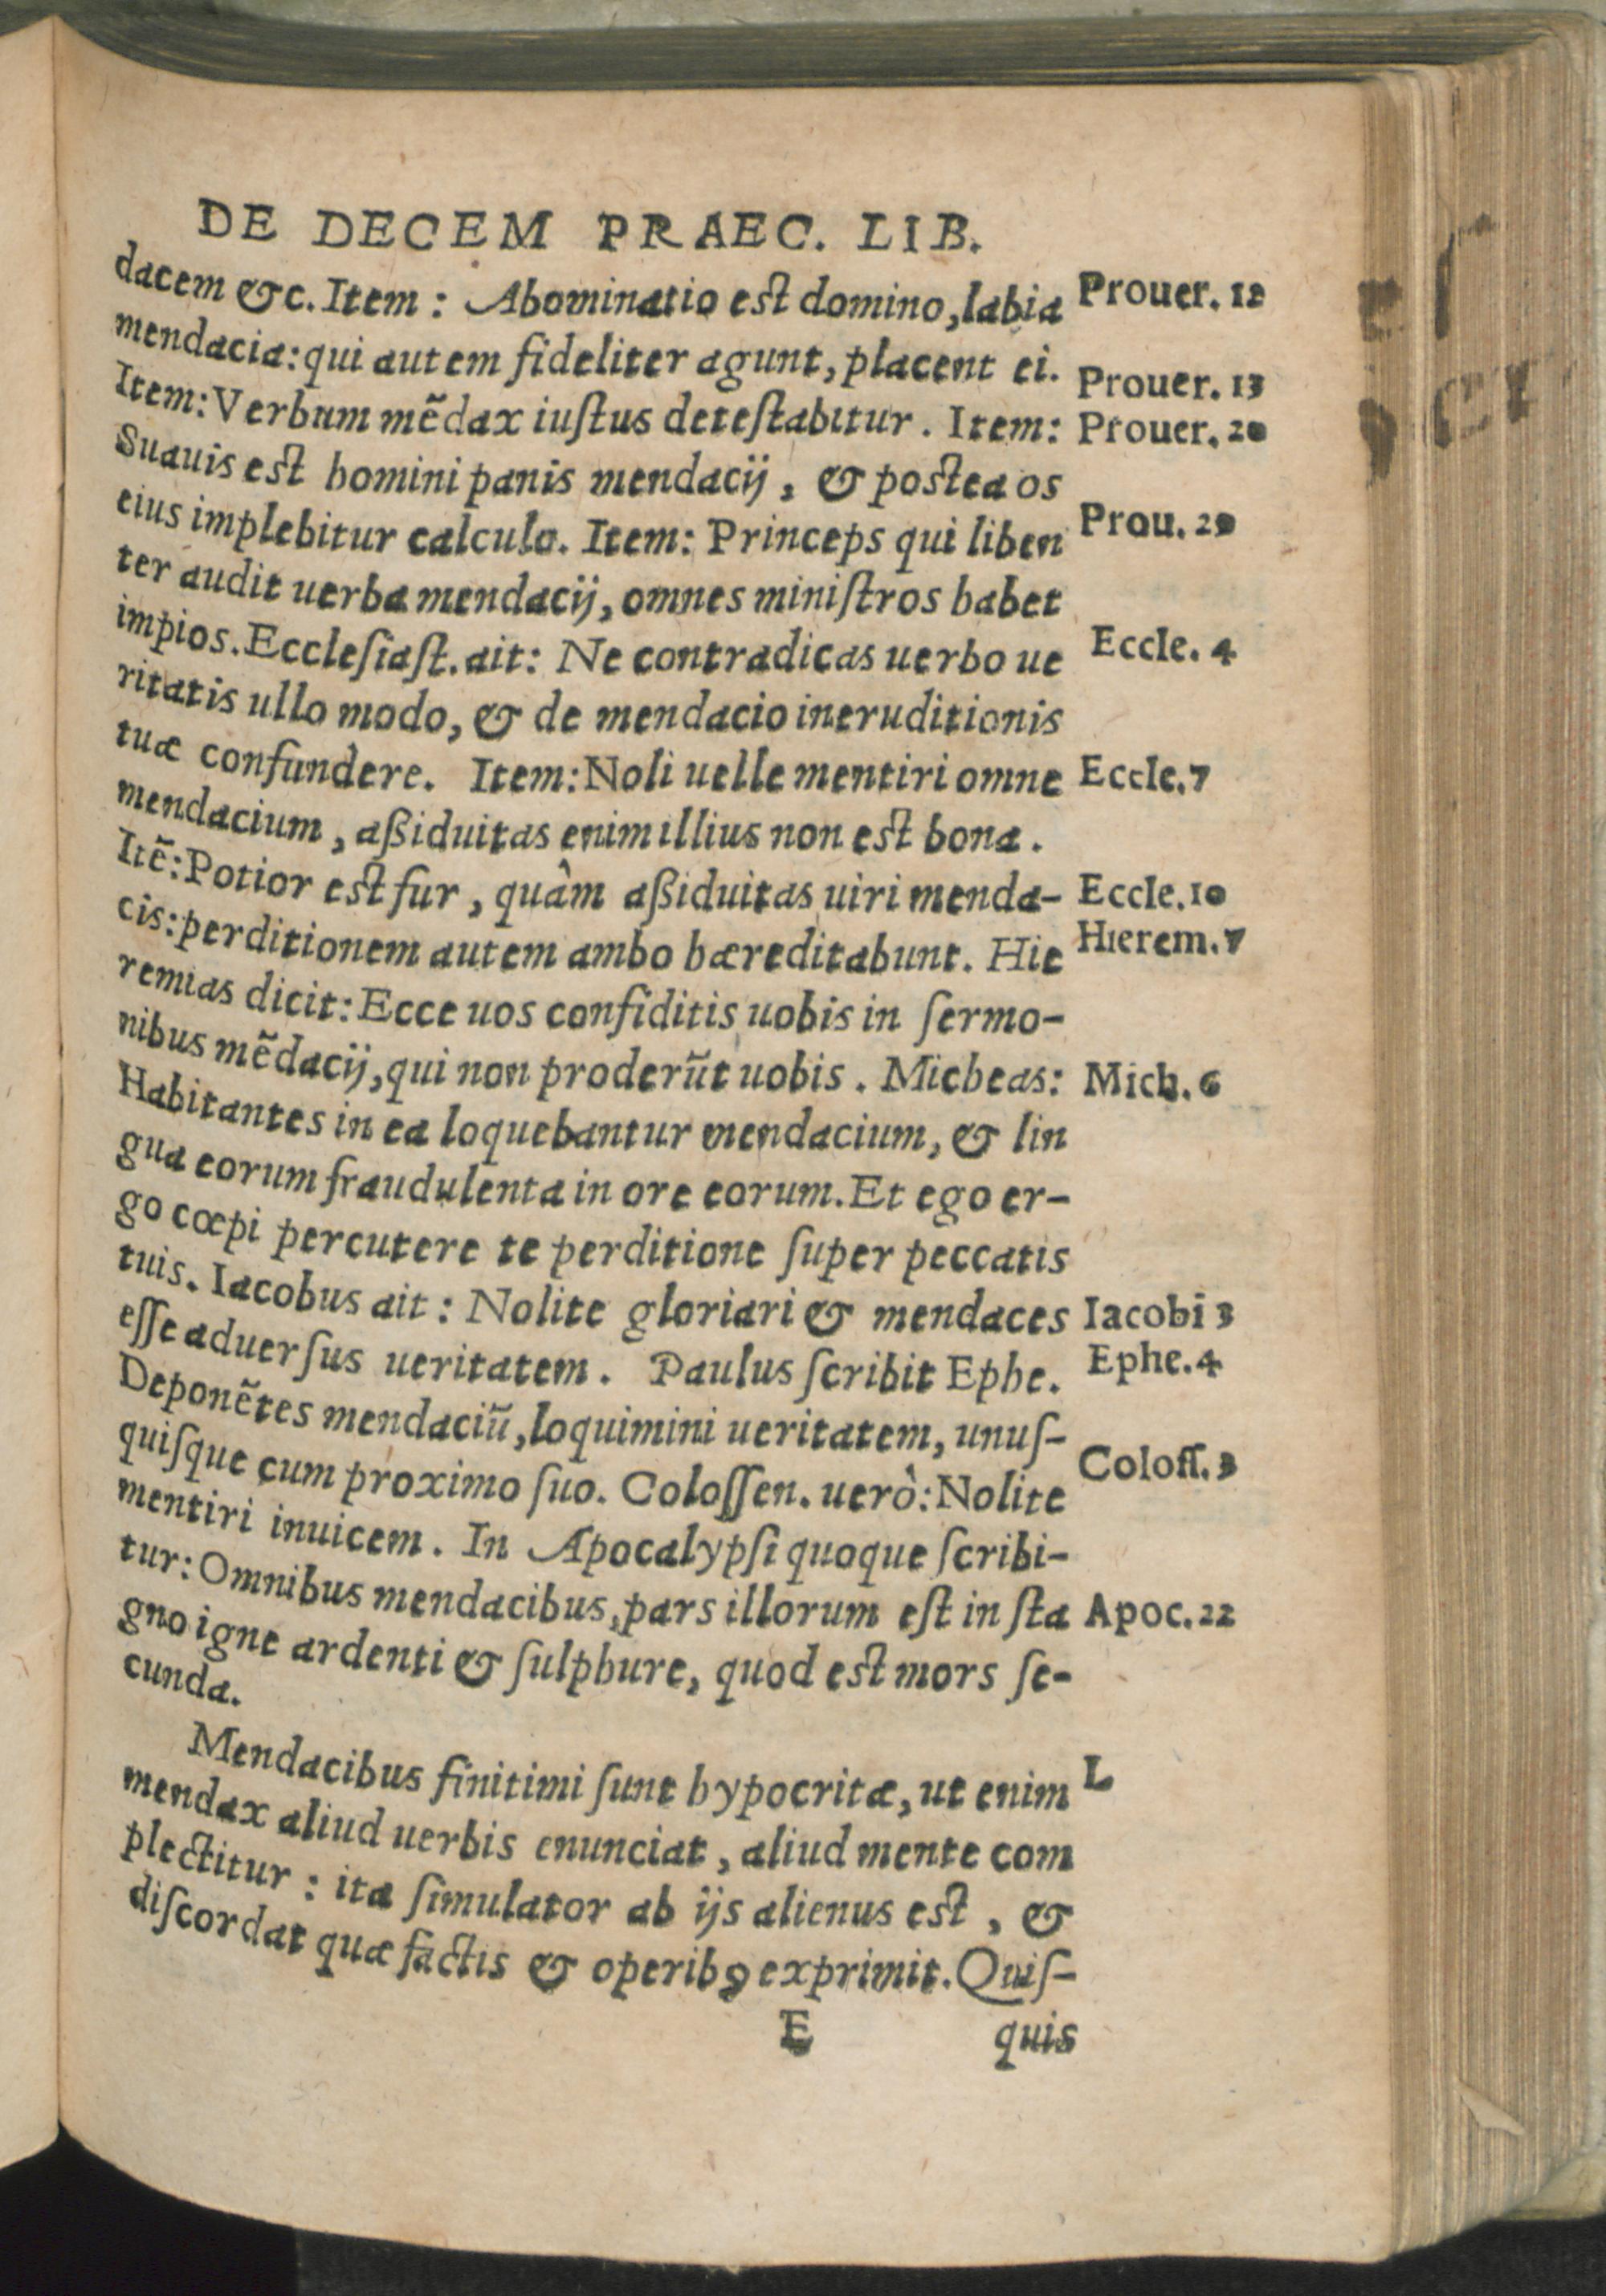 DE DECEM PRAEC. LIB.
dacem &c. Item: Abominatio est domino, labia Prouer. 12
mendacia: qui autem fideliter agunt, placent ei.
Item: Verbum mẽdax iuſtus deteſtabitur. Item: Prouer. 13
Suauis est homini panis mendacij, & postea os Prouer. 20
eius implebitur calculo. Item: Princeps qui liben Prou. 29
ter audit uerba mendacij, omnes miniſtros habet
impios. Eccleſiaſt. ait: Ne contradicas uerbo ue Eccle. 4
ritatis ullo modo, & de mendacio ineruditionis
tuæ confundere. Item: Noli uelle mentiri omne Eccle. 7
mendacium, aßiduitas enim illius non est bona.
Itẽ: Potior est fur, quâm aßiduitas uiri menda- Eccle. 10
cis: perditionem autem ambo hæreditabunt. Hie Hierem. 7
remias dicit: Ecce uos confiditis uobis in ſermo-
nibus mẽdacij, qui non proderũt uobis. Micheas: Mich. 6
Habitantes in ea loquebantur mendacium, & lin
gua eorum fraudulenta in ore eorum. Et ego er-
go cœpi percutere te perditione ſuper peccatis
tuis. Iacobus ait: Nolite gloriari & mendaces Iacobi 3
eſſe aduerſus ueritatem. Paulus ſcribit Ephe. Ephe. 4
Deponẽtes mendaciũ, loquimini ueritatem, unuſ-
quiſque cum proximo ſuo. Coloſſen. uerò: Nolite Coloſſ. 3
mentiri inuicem. In Apocalypſi quoque ſcribi-
tur: Omnibus mendacibus, pars illorum eſt in ſta Apoc. 22
gno igne ardenti & ſulphure, quod est mors ſe-
cunda.
Mendacibus finitimi ſunt hypocritæ, ut enim L
mendax aliud uerbis enunciat, aliud mente com
plectitur: ita ſimulator ab ijs alienus est, &
diſcordat quæ factis & operibꝯ exprimit. Quiſ-
E quis